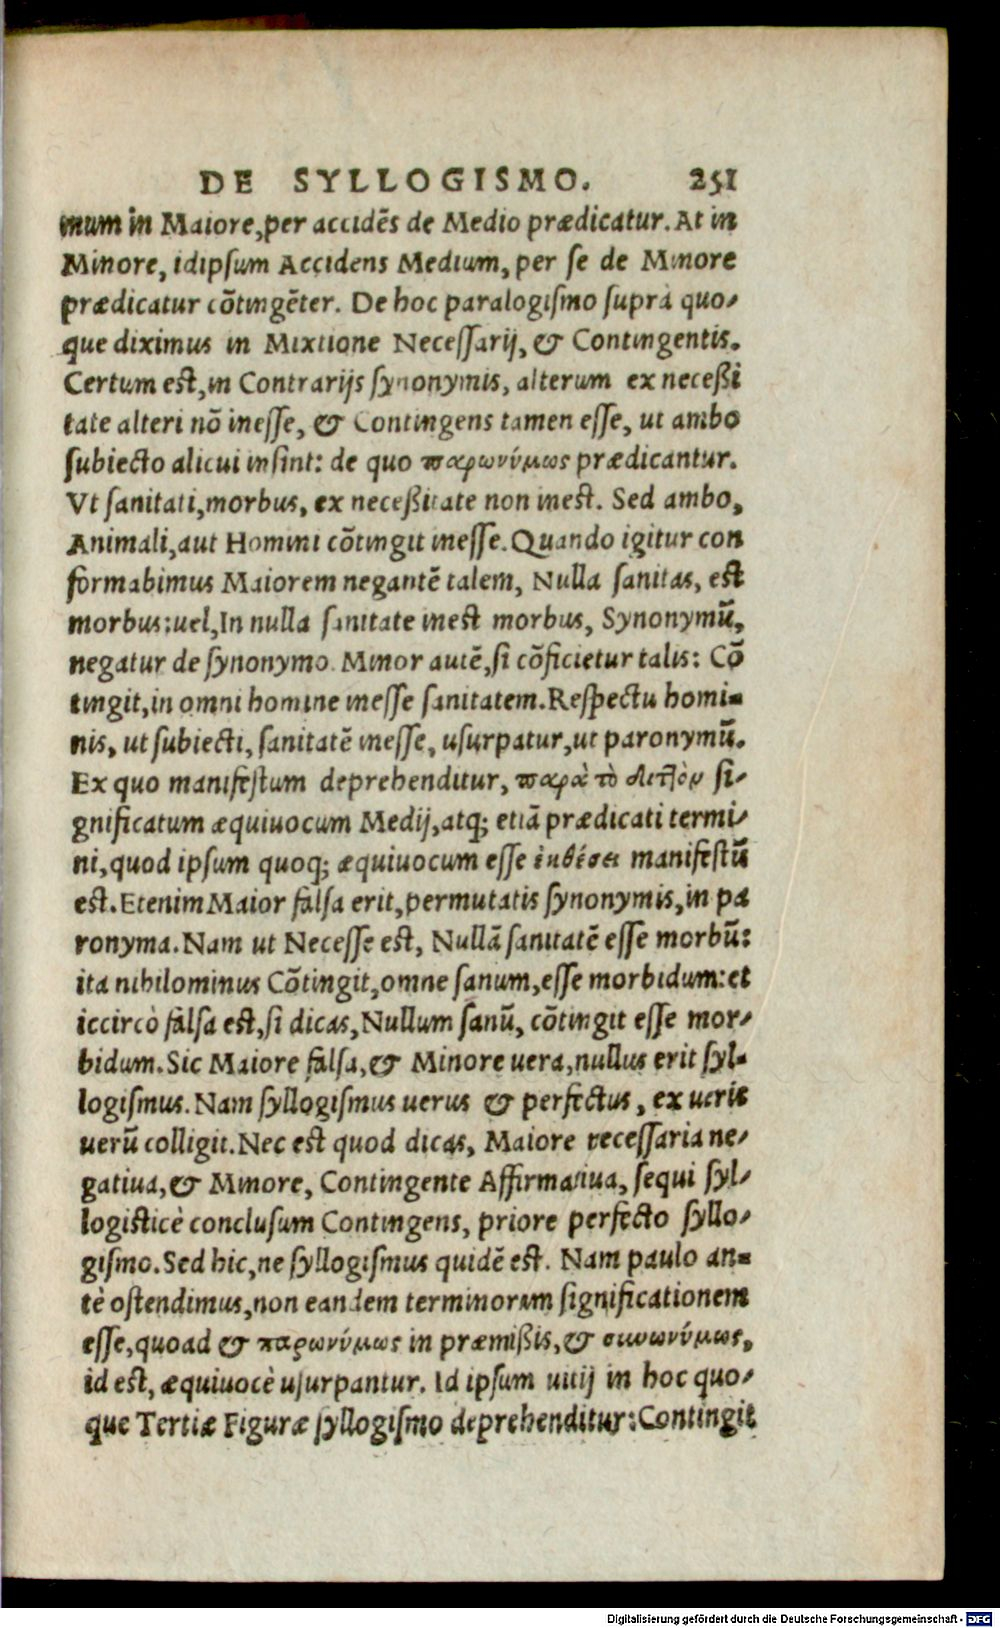 DE SYLLOGISMO. 251
mum in Maiore, per accidēs de Medio prædicatur. At in
Minore, idipsum Accidens Medium, per se de Minore
prædicatur cōtingēter. De hoc paralogismo suprà quo-
que diximus in Mixtione Necessarij, & Contingentis.
Certum est, in Contrarijs synonymis, alterum ex neceßi
tate alteri nō inesse, & Contingens tamen esse, ut ambo
subiecto alicui insint: de quo παρωνύμως prædicantur.
Vt sanitati, morbus, ex neceßitate non inest. Sed ambo,
Animali, aut Homini cōtingit inesse. Quando igitur con
formabimus Maiorem negantē talem, Nulla sanitas, est
morbus: uel, In nulla sanitate inest morbus, Synonymū,
negatur de synonymo. Minor autē, si cōficietur talis: Cō
tingit, in omni homine inesse sanitatem. Respectu homi-
nis, ut subiecti, sanitatē inesse, usurpatur, ut paronymū.
Ex quo manifestum deprehenditur, παρὰ τὸ διττὸν si-
gnificatum æquiuocum Medij, atq; etiā prædicati termi-
ni, quod ipsum quoq; æquiuocum esse ἐκθέσει manifestū
est. Etenim Maior falsa erit, permutatis synonymis, in pa
ronyma. Nam ut Necesse est, Nullā sanitatē esse morbū:
ita nihilominus Cōtingit, omne sanum, esse morbidum: et
iccircò falsa est, si dicas, Nullum sanū, cōtingit esse mor-
bidum. Sic Maiore falsa, & Minore uera, nullus erit syl-
logismus. Nam syllogismus uerus & perfectus, ex ueris
uerū colligit. Nec est quod dicas, Maiore necessaria ne-
gatiua, & Minore, Contingente Affirmatiua, sequi syl-
logisticè conclusum Contingens, priore perfecto syllo-
gismo. Sed hic, ne syllogismus quidē est. Nam paulo an-
tè ostendimus, non eandem terminorum significationem
esse, quoad & παρωνύμως in præmißis, & συνωνύμως,
id est, æquiuocè usurpantur. Id ipsum uitij in hoc quo-
que Tertiæ Figuræ syllogismo deprehenditur: Contingit
Digitalisierung gefördert durch die Deutsche Forschungsgemeinschaft - DFG